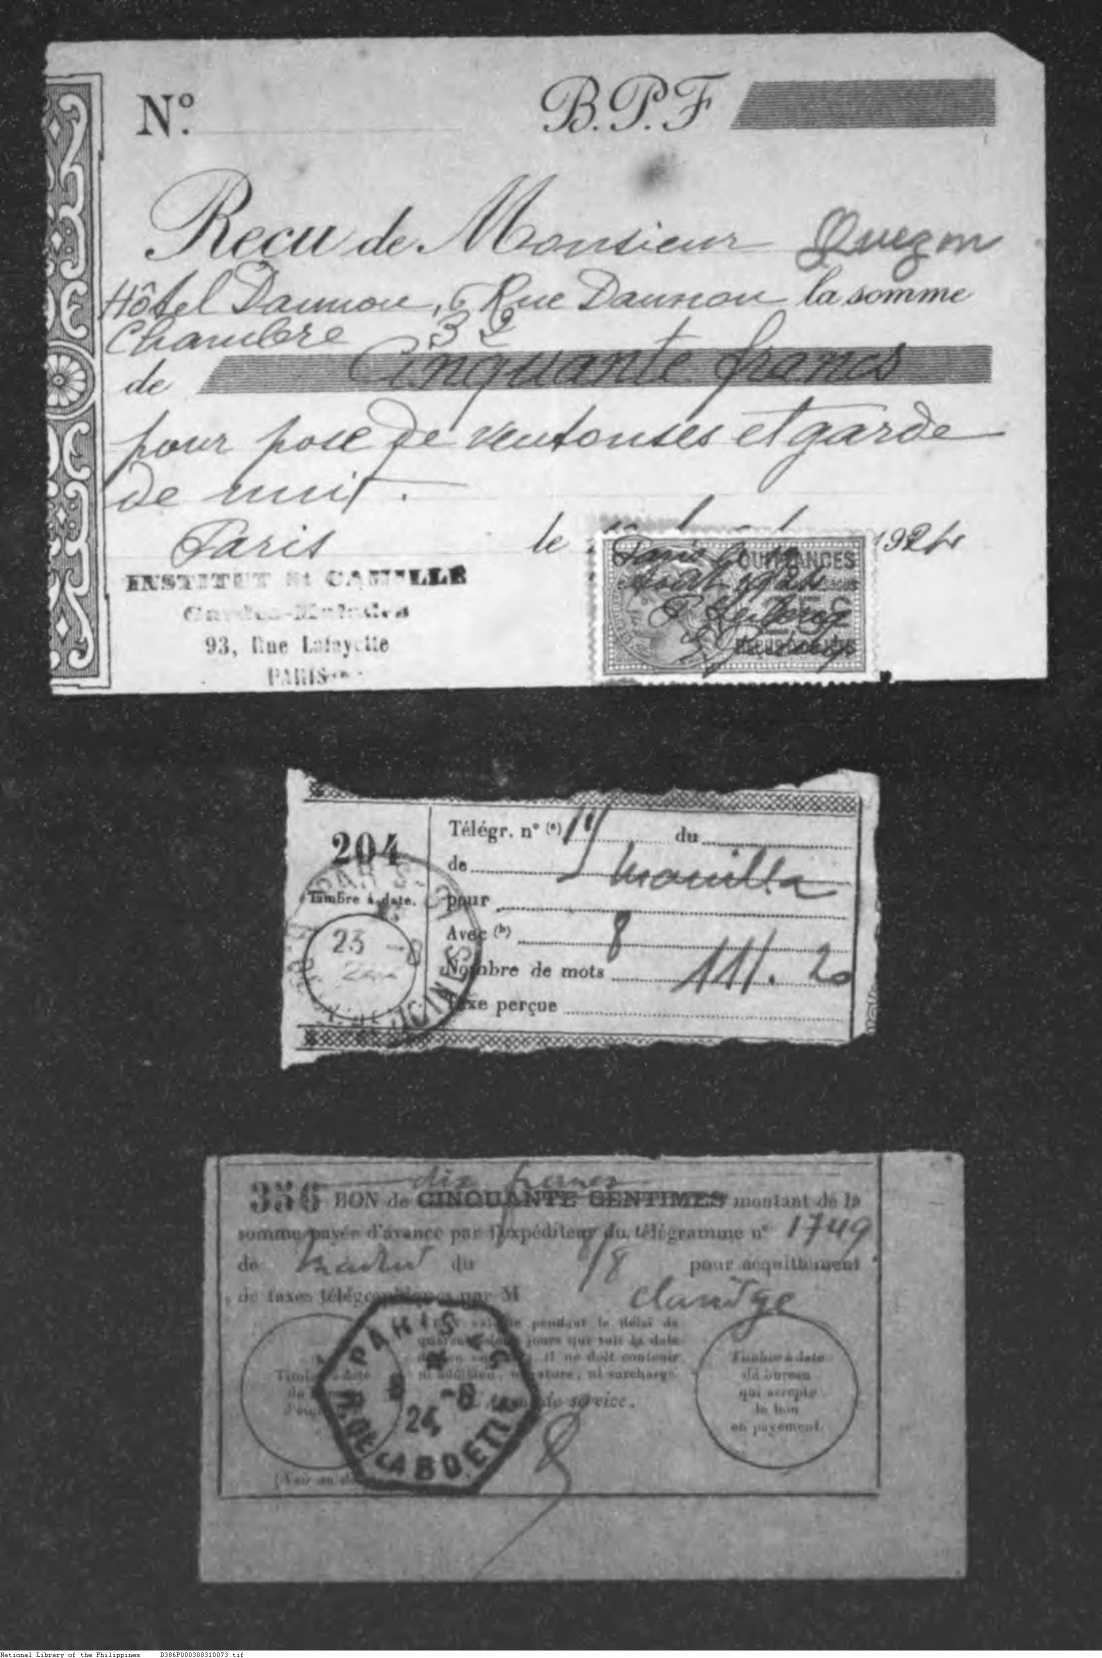 Nº.
B.P.F
Recu de Monsieur Quezon
Hôtel Daunou, 6 Rue Daunou la somme
Chambre 32
de Cinquante francs
pour pose de ventouses et garde
de nuit.
Paris le 1924
INSTITUT St CAMILLE
Gardes-Malades
93, Rue Lafayette
PARIS
QUITTANCES
Paris
Août 1924
204
Timbre à date.
PARIS
23
Télégr. nº (a) du
de Manilla
pour
Avec (b) 8
Nombre de mots 111.20
Taxe perçue
dix francs
356 BON de CINQUANTE CENTIMES montant de la
somme payée d'avance par l'expéditeur du télégramme nº 1749
de du 8/8 pour acquittement
de taxes télégraphiques par M claridge
pendant le délai de
jours qui suit la date
il ne doit contenir
ni addition, ni rature, ni surcharge.
service.
Timbre à date
du bureau
qui accepte
le bon
en payement.
PARIS
8
24
R. DE LA BOETIE
(Voir au
National Library of the Philippines D386P000308310073.tif